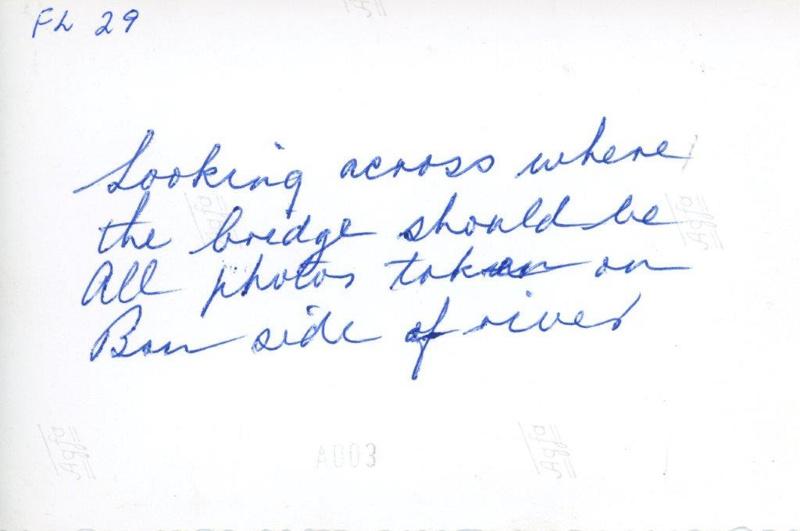 FL 29
Looking across where
the bridge should be
All photos taken on
Bon side of river
Agfa
Agfa
Agfa
Agfa
A003
Agfa